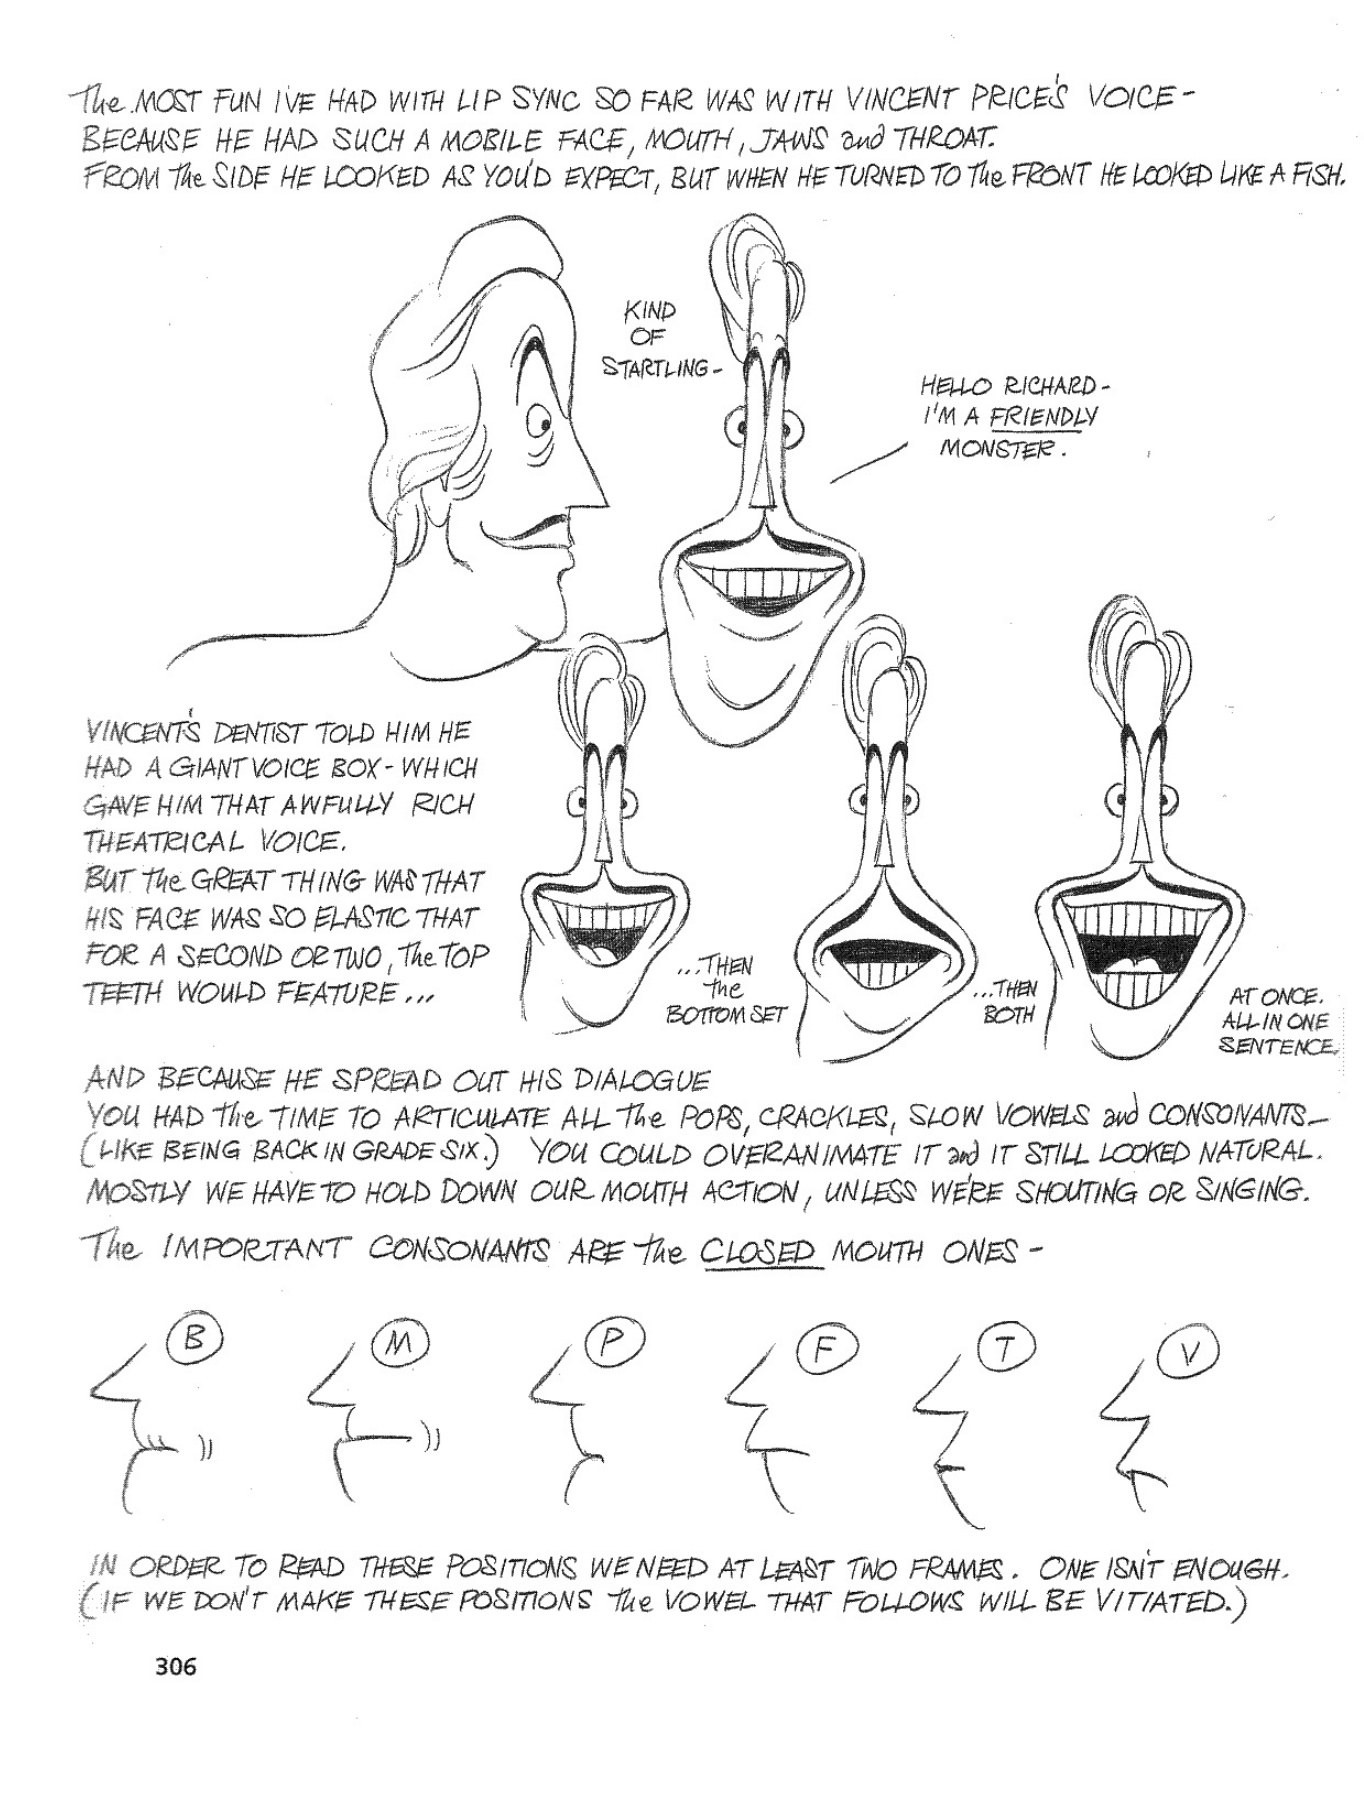 The MOST FUN I'VE HAD WITH LIP SYNC SO FAR WAS WITH VINCENT PRICE'S VOICE -
BECAUSE HE HAD SUCH A MOBILE FACE, MOUTH, JAWS and THROAT.
FROM The SIDE HE LOOKED AS YOU'D EXPECT, BUT WHEN HE TURNED TO The FRONT HE LOOKED LIKE A FISH.
KIND
OF
STARTLING -
HELLO RICHARD -
I'M A FRIENDLY
MONSTER.
VINCENT'S DENTIST TOLD HIM HE
HAD A GIANT VOICE BOX - WHICH
GAVE HIM THAT AWFULLY RICH
THEATRICAL VOICE.
BUT The GREAT THING WAS THAT
HIS FACE WAS SO ELASTIC THAT
FOR A SECOND OR TWO, The TOP
TEETH WOULD FEATURE ...
...THEN
the
BOTTOM SET
...THEN
BOTH
AT ONCE.
ALL IN ONE
SENTENCE.
AND BECAUSE HE SPREAD OUT HIS DIALOGUE
YOU HAD The TIME TO ARTICULATE ALL The POPS, CRACKLES, SLOW VOWELS and CONSONANTS -
(LIKE BEING BACK IN GRADE SIX.) YOU COULD OVERANIMATE IT and IT STILL LOOKED NATURAL.
MOSTLY WE HAVE TO HOLD DOWN OUR MOUTH ACTION, UNLESS WE'RE SHOUTING OR SINGING.
The IMPORTANT CONSONANTS ARE The CLOSED MOUTH ONES -
B M P F T V
IN ORDER TO READ THESE POSITIONS WE NEED AT LEAST TWO FRAMES. ONE ISN'T ENOUGH.
(IF WE DON'T MAKE THESE POSITIONS The VOWEL THAT FOLLOWS WILL BE VITIATED.)
306